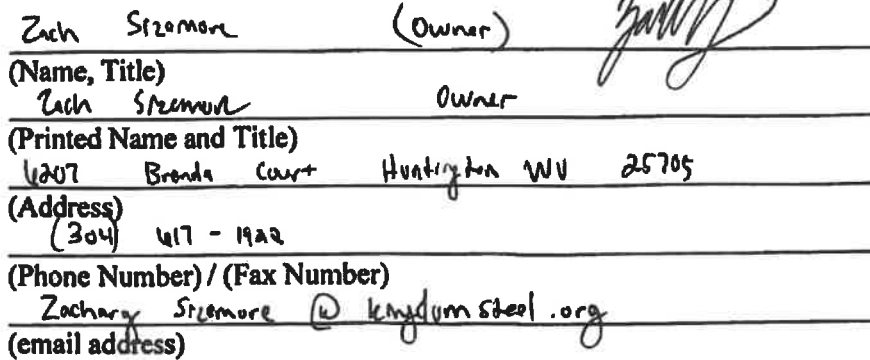 Zach Sizemore (Owner)
(Name, Title)
Zach Sizemore Owner
(Printed Name and Title)
6207 Brenda Court Huntington WV 25705
(Address)
(304) 617 - 1922
(Phone Number) / (Fax Number)
Zachary Sizemore @ kingdomsteel.org
(email address)